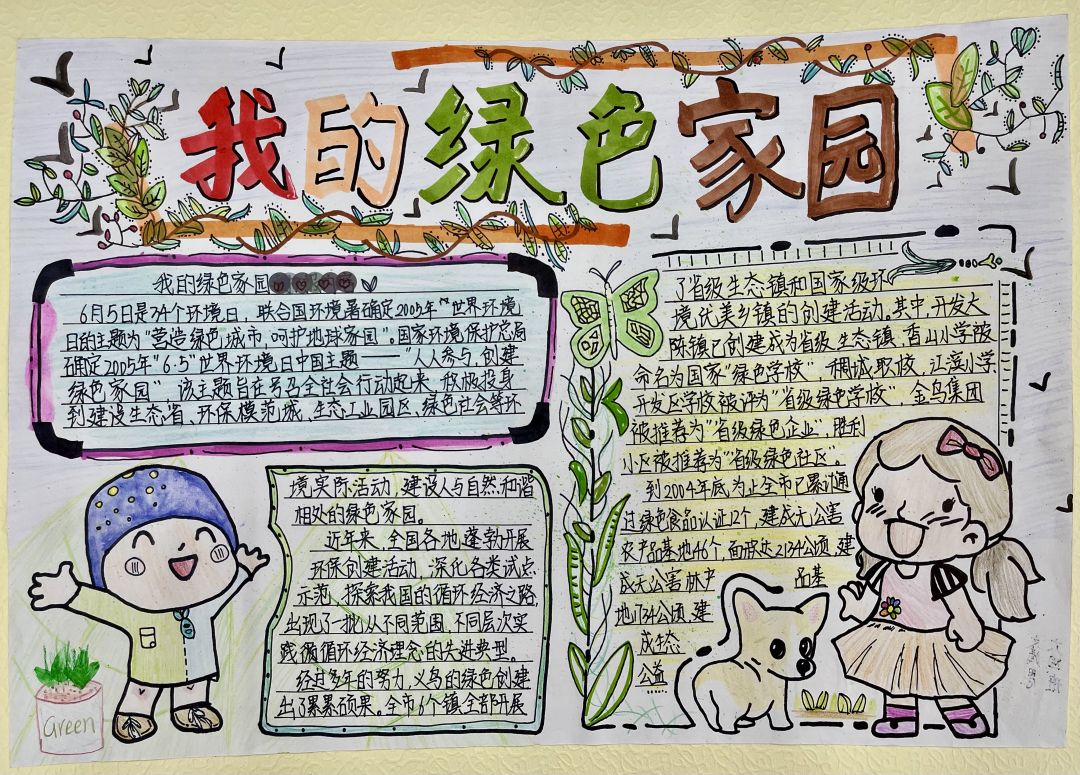 我的绿色家园
我的绿色家园
6月5日是34个环境日，联合国环境署确定2005年"世界环境
日的主题为"营造绿色城市，呵护地球家园"。国家环境保护总局
确定2005年"6·5"世界环境日中国主题——"人人参与，创建
绿色家园"，该主题旨在号召全社会行动起来，积极投身
到建设生态省、环保模范城、生态工业园区、绿色社会等环
境实际活动，建设人与自然和谐
相处的绿色家园。
近年来，全国各地蓬勃开展
环保创建活动，深化各类试点
示范，探索我国的循环经济之路，
出现了一批从不同范围，不同层次实
践循循环经济理念的先进典型。
经过多年的努力，义乌的绿色创建
出了累累硕果。全市6个镇全部开展
了省级生态镇和国家级环
境优美乡镇的创建活动。其中，开发大
陈镇已创建成为省级生态镇，香山小学被
命名为国家"绿色学校"，稠城职校，江滨小学
开发区学校被评为"省级绿色学校"，金鸟集团
被推荐为"省级绿色企业"，胜利
小区被推荐为"省级绿色社区"。
到2004年底为止全市已累计通
过绿色食品认证12个，建成无公害
农产品基地46个，面积达2134公顷，建
成无公害林产 品基
地1734公顷，建
成生态
公益
……
Green